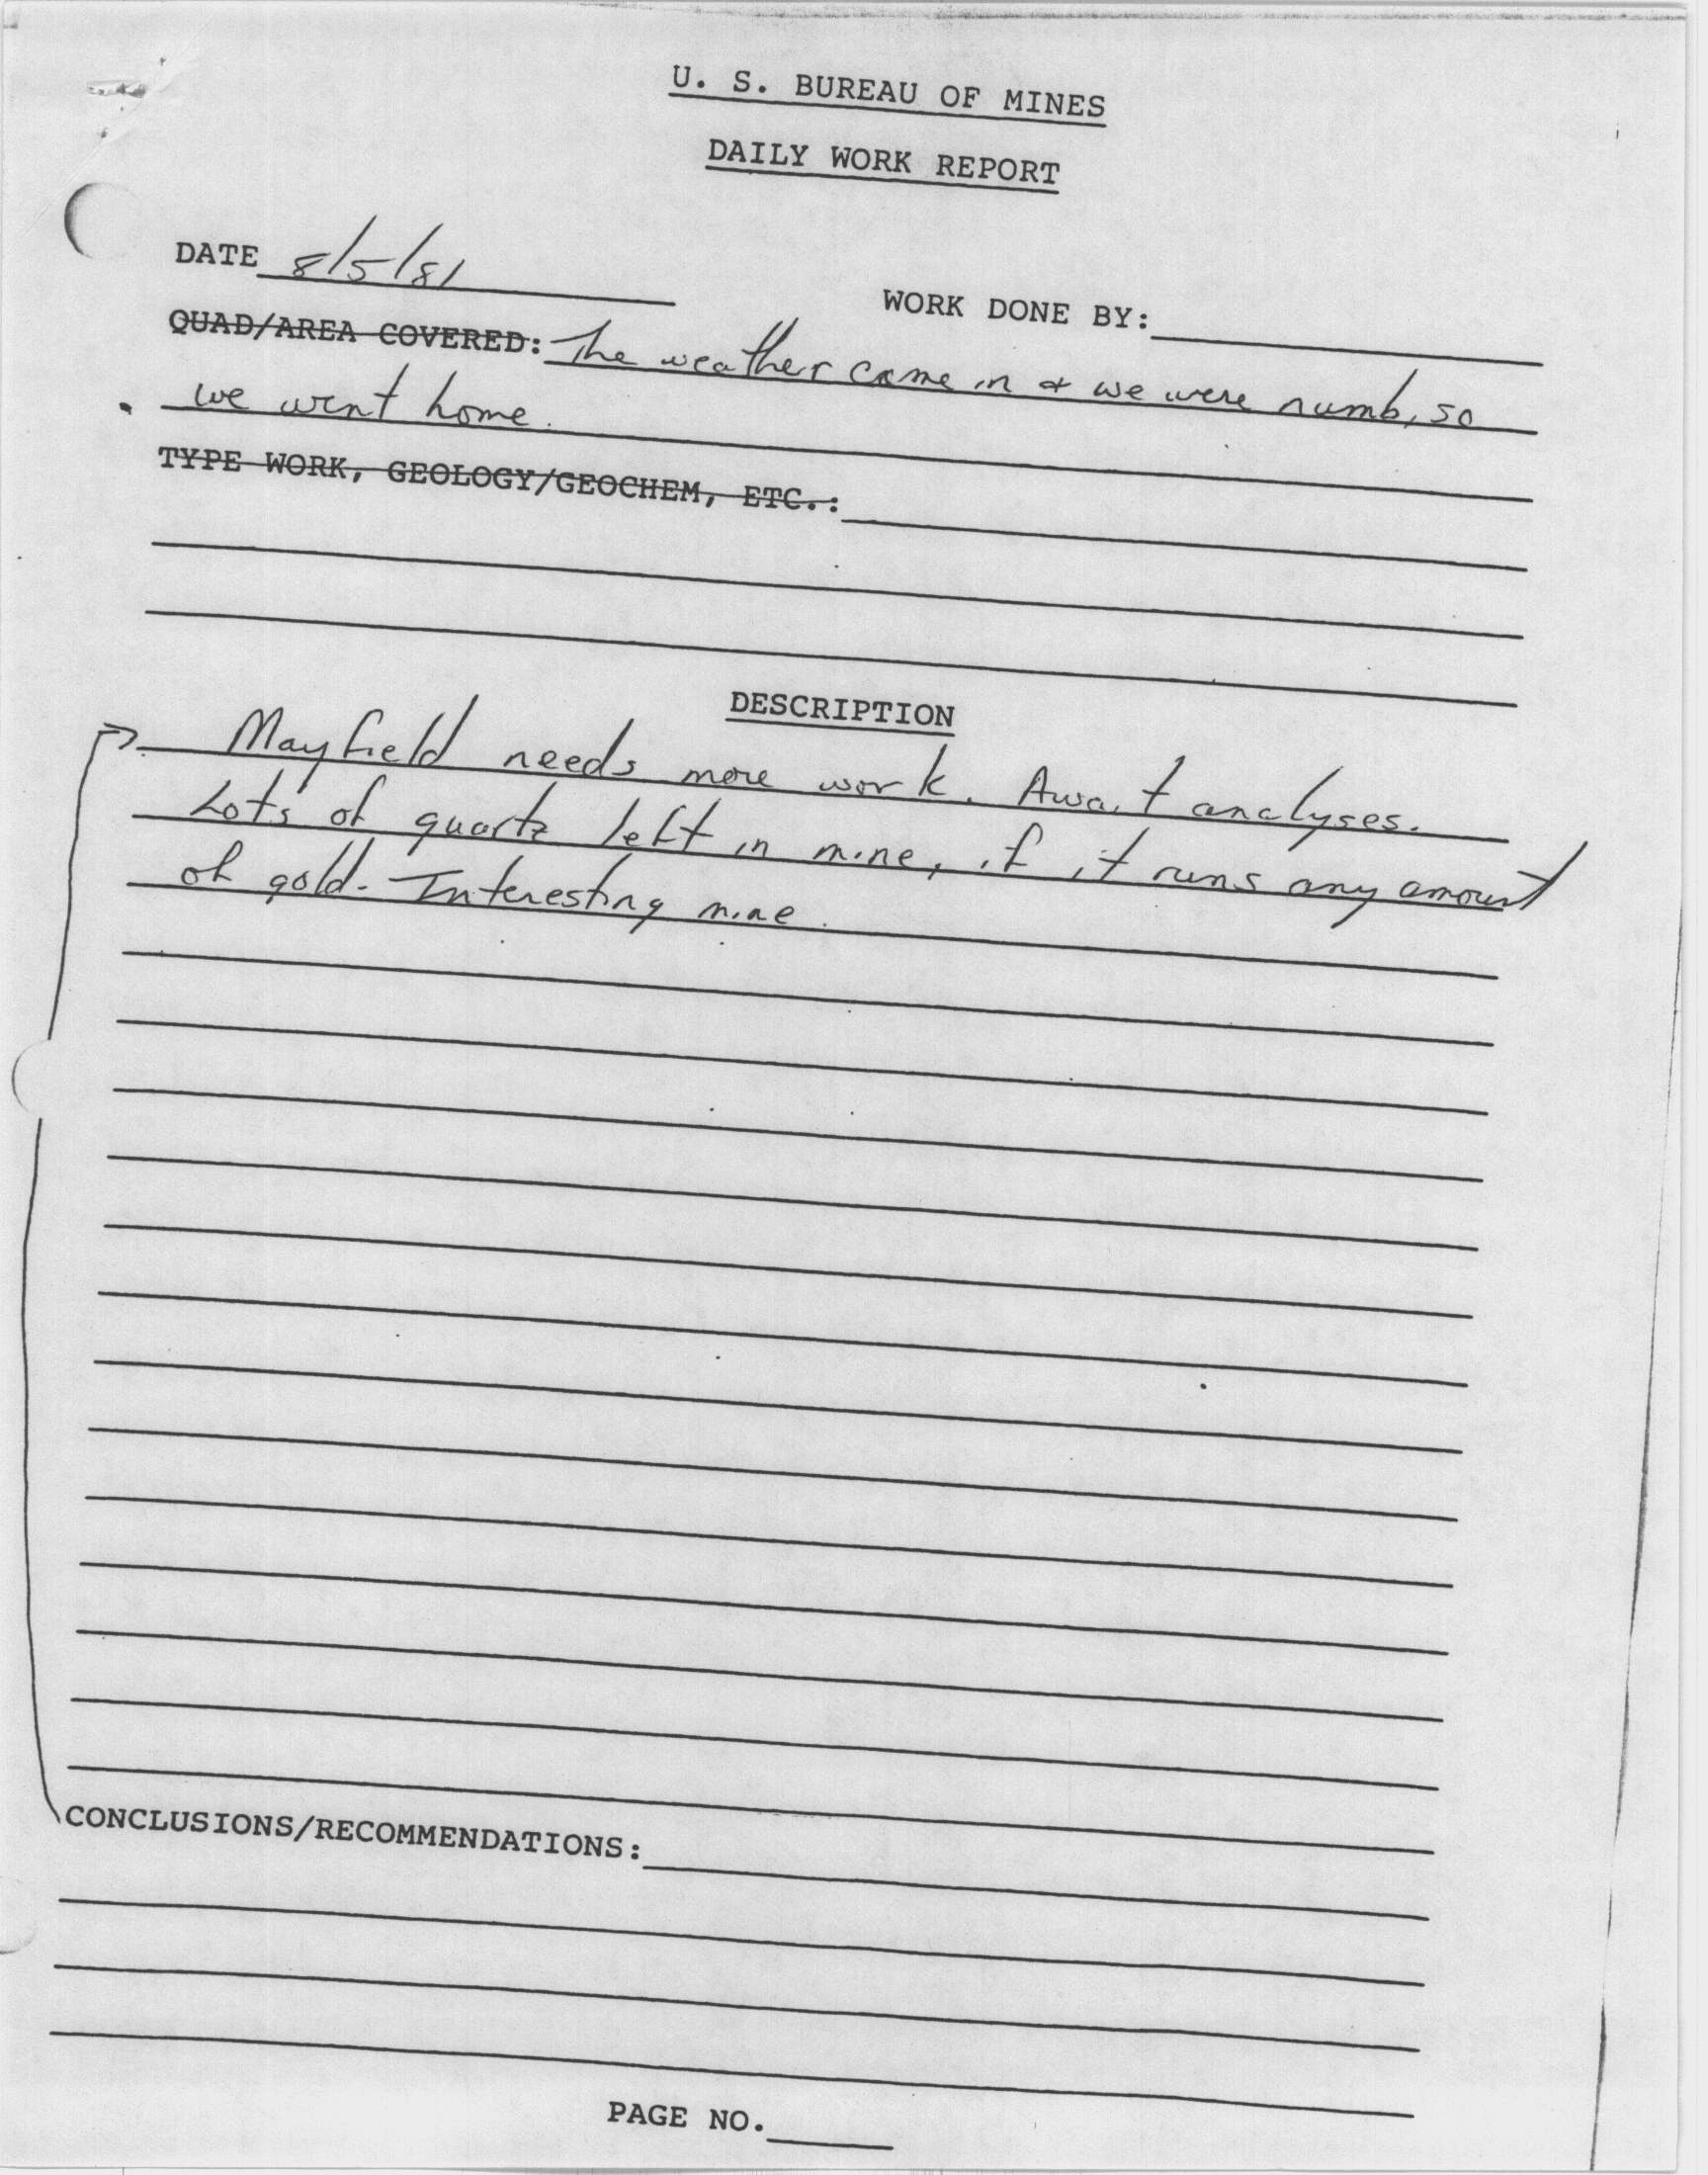 U. S. BUREAU OF MINES
DAILY WORK REPORT
DATE 8/5/81
WORK DONE BY:
QUAD/AREA COVERED: The weather came in & we were numb, so
we went home.
TYPE WORK, GEOLOGY/GEOCHEM, ETC.:
DESCRIPTION
Mayfield needs more work. Await analyses.
Lots of quartz left in mine, if it runs any amount
of gold. Interesting mine.
CONCLUSIONS/RECOMMENDATIONS:
PAGE NO.